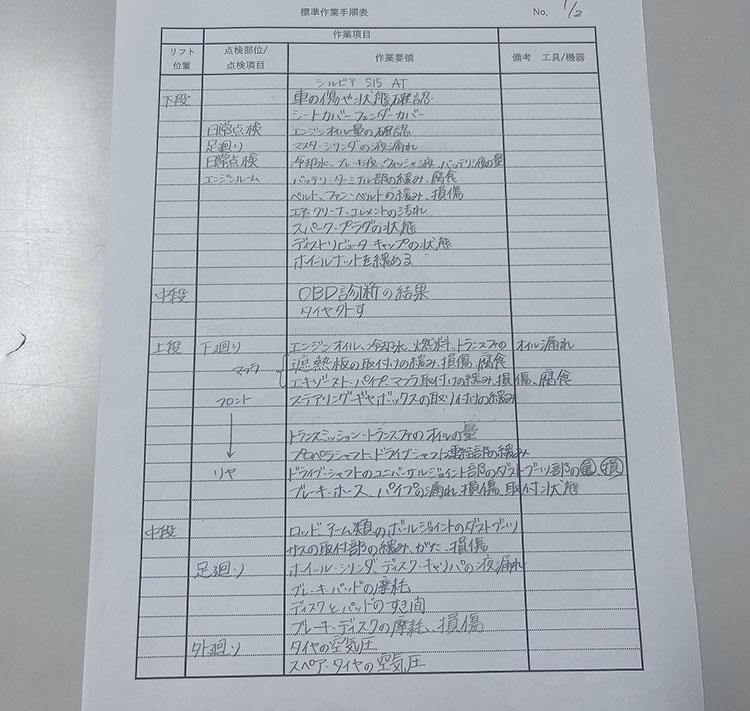 標準作業手順表 No. 1/2
作業項目
リフト位置 点検部位/点検項目 作業要領 備考 工具/機器
シルビア S15 AT
下段 車の傷や状態確認
シートカバー フェンダーカバー
日常点検 エンジンオイル量の確認
足廻り マスターシリンダの液漏れ
日常点検 冷却水、ブレーキ液、ウォッシャ液、バッテリ液の量
エンジンルーム バッテリ・ターミナル部の緩み、腐食
ベルト、ファン・ベルトの緩み、損傷
エア・クリーナ、エレメントの汚れ
スパーク・プラグの状態
ディストリビュータ・キャップの状態
ホイールナットを緩める
中段 OBD診断の結果
タイヤ外す
上段 下廻り エンジンオイル、冷却水、燃料、トランスファの オイル漏れ
マフラ 遮熱板の取付けの緩み、損傷、腐食
エキゾースト・パイプ、マフラ取付けの緩み、損傷、腐食
フロント ステアリング・ギヤボックスの取り付けの緩み
トランスミッション・トランスファのオイルの量
プロペラシャフト、ドライブシャフト連結部の緩み
リヤ ドライブ・シャフトのユニバーサルジョイント部のダストブーツ部の 損
ブレーキ・ホース、パイプの漏れ、損傷、取付状態
中段 ロッド、アーム類のボールジョイントのダストブーツ
サスの取付部の緩み、がた、損傷
足廻り ホイール・シリンダ、ディスク・キャリパの液漏れ
ブレーキ・パッドの摩耗
ディスクとパッドのすき間
ブレーキ・ディスクの摩耗、損傷
外廻り タイヤの空気圧
スペア・タイヤの空気圧